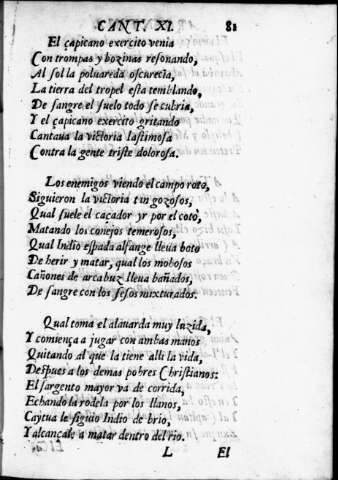 CANT. XI. 81
El çapicano exercito venia
Con trompas y bozinas resonando,
Al sol la poluareda oscurecia,
La tierra del tropel esta temblando,
De sangre el suelo todo se cubria,
Y el çapicano exercito gritando
Cantaua la victoria lastimosa
Contra la gente triste dolorosa.
Los enemigos viendo el campo roto,
Siguieron la victoria tan gozosos,
Qual suele el caçador yr por el coto,
Matando los conejos temerosos,
Qual Indio espada alfange lleua boto
De herir y matar, qual los mohosos
Cañones de arcabuz lleua bañados,
De sangre con los sesos mixturados.
Qual toma el alauarda muy luzida,
Y comiença a jugar con ambas manos
Quitando al que la tiene alli la vida,
Despues a los demas pobres Christianos:
El sargento mayor va de corrida,
Echando la rodela por los llanos,
Caytua le siguio Indio de brio,
Y alcançale a matar dentro del rio.
L El